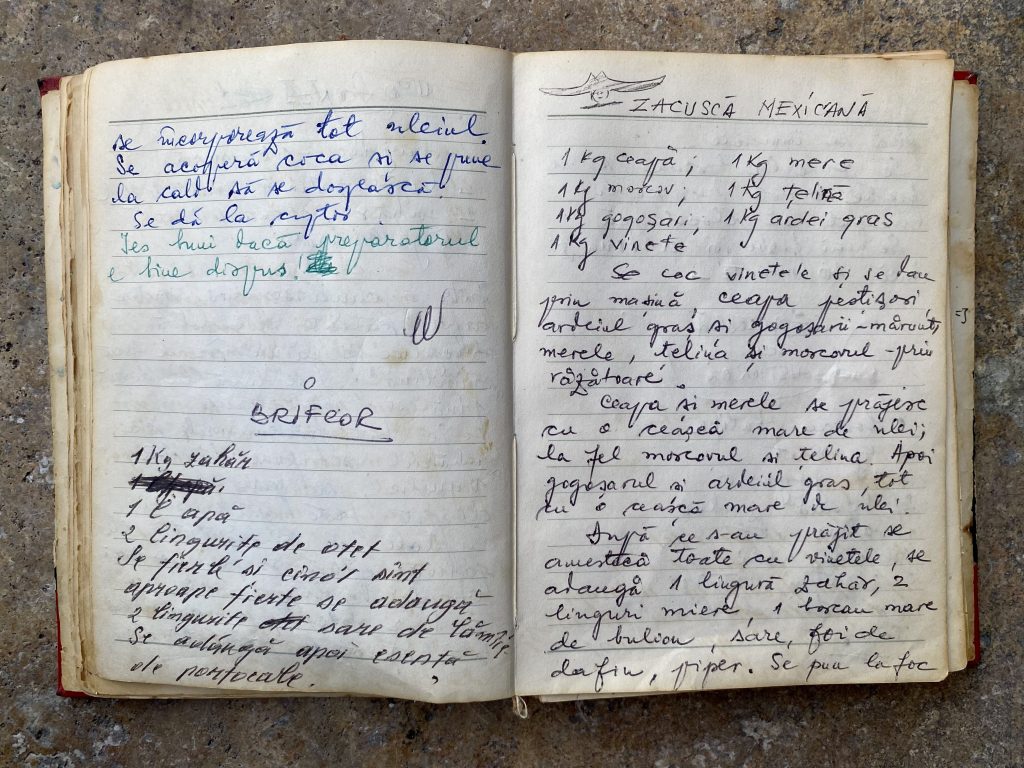 se incorporează tot uleiul.
Se acoperă coca si se pune
la cald să se dospească.
Se dă la cuptor.
Ies buni dacă preparatorul
e bine dispus!
BRIFCOR
1 Kg zahăr
1 l apă
2 lingurite de otet
Se fierb si cînd sînt
aproape fierte se adaugă
2 lingurite sare de lămîie
Se adăugă apoi esentă
de portocale.
ZACUSCĂ MEXICANĂ
1 Kg ceapă; 1 Kg mere
1 Kg morcov; 1 Kg țelină
1 Kg gogoșari; 1 Kg ardei gras
1 Kg vinete
Se coc vinetele și se dau
prin masină, ceapa peștisori,
ardeiul gras si gogoșarii - mărunți
merele, țelina și morcovul - prin
răzătoare.
Ceapa si merele se prăjesc
cu o ceașcă mare de ulei;
la fel morcovul si țelina. Apoi
gogoșarul si ardeiul gras, tot
cu o ceașcă mare de ulei.
După ce s-au prăjit se
amestecă toate cu vinetele, se
adaugă 1 lingură zahăr, 2
linguri miere, 1 borcan mare
de bulion, sare, foi de
dafin, piper. Se pun la foc